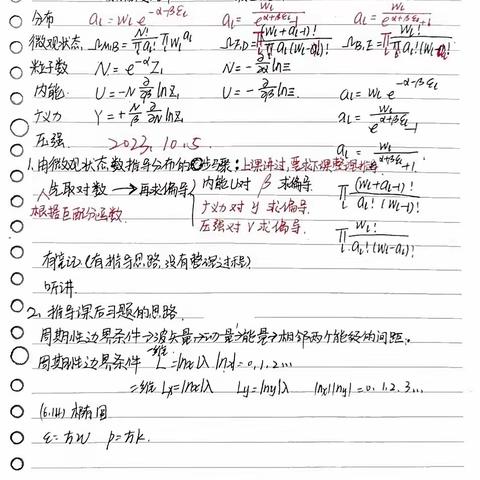 分布 a_l = w_l e^{-α-βε_l} a_l = w_l / (e^{α+βε_l} - 1) a_l = w_l / (e^{α+βε_l} + 1)
微观状态 Ω_{M.B} = N! / π a_l! π w_l^{a_l} Ω_{F.D} = π (w_l + a_l - 1)! / a_l! (w_l - 1)! Ω_{B.E} = π w_l! / a_l! (w_l - a_l)!
粒子数 N = e^{-α} Z_1 N = -∂/∂α lnΞ
内能 U = -N ∂/∂β lnZ_1 U = -∂/∂β lnΞ a_l = w_l e^{-α-βε_l}
广义力 Y = + N/β ∂/∂N lnZ_1 a_l = w_l / e^{α+βε_l} - 1
压强 2023.10.5 a_l = w_l / e^{α+βε_l} + 1
1. 由微观状态数推导分布的步骤:上课讲过,要求下课整理推导
人 先取对数 → 再求偏导 内能U对 β 求偏导 π_l (w_l + a_l - 1)! / a_l! (w_l - 1)!
广义力对 y 求偏导
根据巨配分函数 压强对 V 求偏导. π_l w_l! / a_l! (w_l - a_l)!
有笔记(有推导思路,没有整理过程)
听讲.
2. 推导课后习题的思路.
周期性边界条件→波矢量→动量→能量→相邻两个能级的间距.
周期性边界条件 一维 L = |n_x|λ |n_x| = 0,1,2...
二维 L_x = |n_x|λ L_y = |n_y|λ |n_x| |n_y| = 0,1,2,3...
(6.14) 椭圆
ε = ħw p = ħk.